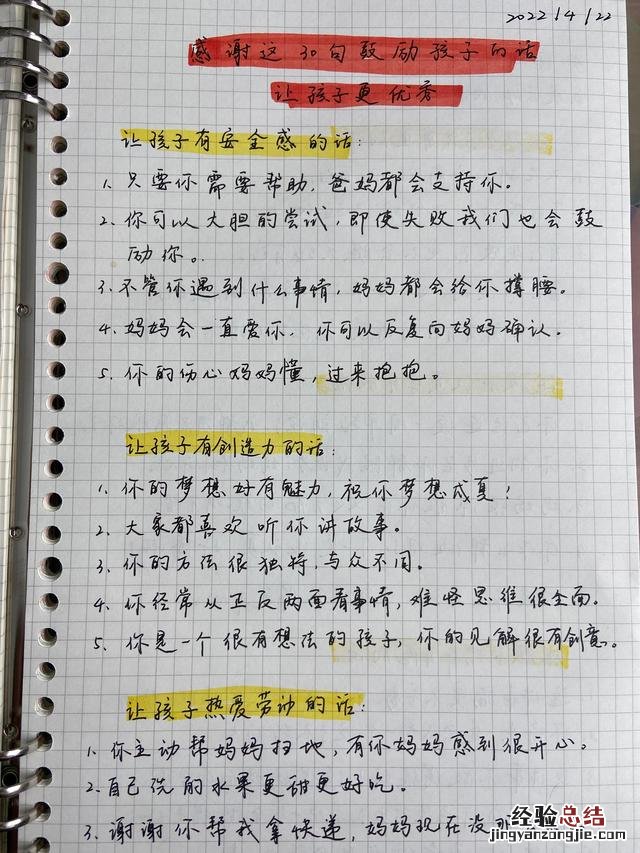 2022/4/22
感谢这30句鼓励孩子的话
让孩子更优秀
让孩子有安全感的话:
1、只要你需要帮助,爸妈都会支持你。
2、你可以大胆的尝试,即使失败我们也会鼓
励你。
3、不管你遇到什么事情,妈妈都会给你撑腰。
4、妈妈会一直爱你,你可以反复向妈妈确认。
5、你的伤心妈妈懂,过来抱抱。
让孩子有创造力的话:
1、你的梦想好有魅力,祝你梦想成真!
2、大家都喜欢听你讲故事。
3、你的方法很独特,与众不同。
4、你经常从正反两面看事情,难怪思维很全面。
5、你是一个很有想法的孩子,你的见解很有创意。
让孩子热爱劳动的话:
1、你主动帮妈妈扫地,有你妈妈感到很开心。
2、自己洗的水果更甜更好吃。
3、谢谢你帮我拿快递,妈妈现在没那
经验总结
www.jingyanzongjie.com